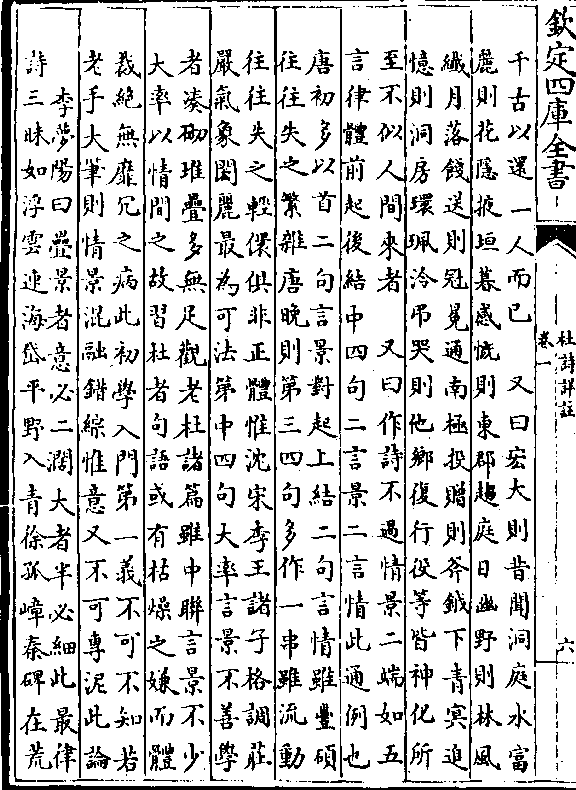 欽定四庫全書
杜詩詳註
卷一
六
千古以還一人而已　又曰宏大則昔聞洞庭水富
麗則花隱掖垣暮感慨則東郡趨庭日幽野則林風
纖月落餞送則冠冕通南極投贈則斧鉞下青冥追
憶則洞房環珮冷弔哭則他鄉復行役等皆神化所
至不似人間來者　又曰作詩不過情景二端如五
言律體前起後結中四句二言景二言情此通例也
唐初多以首二句言景對起上結二句言情雖豐碩
往往失之繁雜唐晚則第三四句多作一串雖流動
往往失之輕儇俱非正體惟沈宋李王諸子格調莊
嚴氣象閎麗最為可法第中四句大率言景不善學
者湊砌堆疊多無足觀老杜諸篇雖中聯言景不少
大率以情間之故習杜者句語或有枯燥之嫌而體
裁絕無靡冗之病此初學入門第一義不可不知若
老手大筆則情景混融錯綜惟意又不可專泥此論
李夢陽曰疊景者意必二濶大者半必細此最律
詩三昧如浮雲連海岱平野入青徐孤嶂秦碑在荒